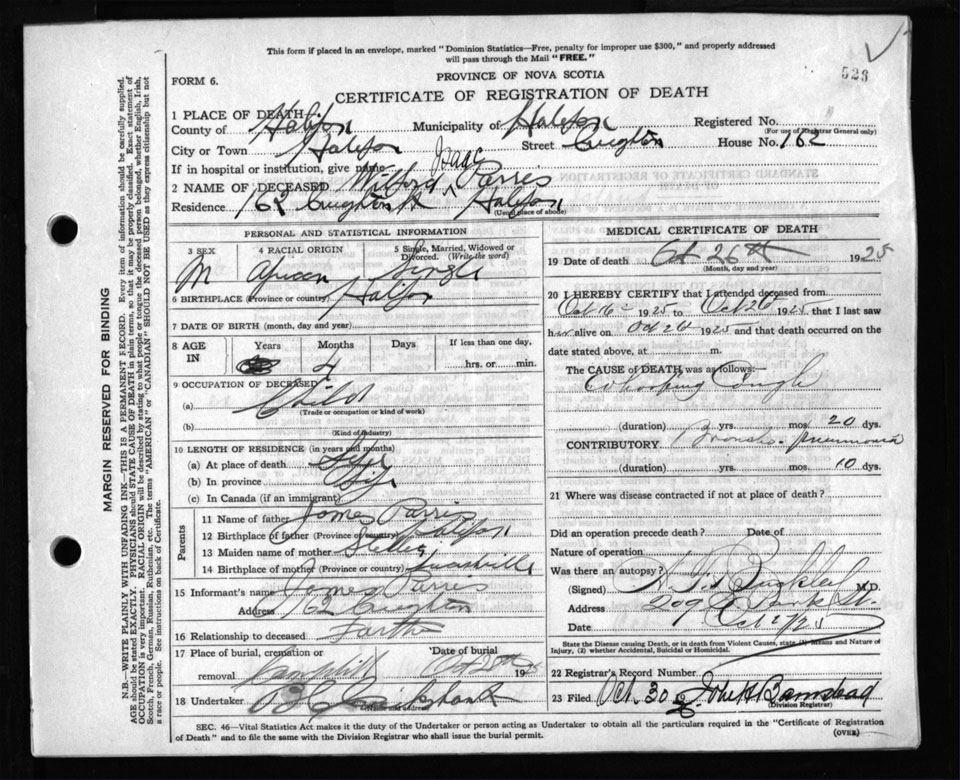 This form if placed in an envelope, marked "Dominion Statistics—Free, penalty for improper use $300," and properly addressed
will pass through the Mail "FREE."
523
FORM 6.
PROVINCE OF NOVA SCOTIA
CERTIFICATE OF REGISTRATION OF DEATH
1 PLACE OF DEATH
County of Halifax Municipality of Halifax Registered No.
(For use of Registrar General only)
City or Town Halifax Street Creighton House No. 162
If in hospital or institution, give name
Isaac
2 NAME OF DECEASED Wilford Parris
Residence 162 Creighton St Halifax
(Usual place of abode)
PERSONAL AND STATISTICAL INFORMATION
3 SEX 4 RACIAL ORIGIN 5 Single, Married, Widowed or Divorced. (Write the word)
M African Single
6 BIRTHPLACE (Province or country) Halifax
7 DATE OF BIRTH (month, day and year)
8 AGE IN Years Months Days If less than one day,
4 hrs. or min.
9 OCCUPATION OF DECEASED
(a) Child
(Trade or occupation or kind of work)
(b)
(Kind of industry)
10 LENGTH OF RESIDENCE (in years and months)
(a) At place of death Life
(b) In province
(c) In Canada (if an immigrant)
Parents
11 Name of father James Parris
12 Birthplace of father (Province or country) Halifax
13 Maiden name of mother
14 Birthplace of mother (Province or country)
15 Informant's name James Parris
Address 162 Creighton
16 Relationship to deceased Father
17 Place of burial, cremation or removal Date of burial
Oct 28th 1925
18 Undertaker
MEDICAL CERTIFICATE OF DEATH
19 Date of death Oct 26th 1925
(Month, day and year)
20 I HEREBY CERTIFY that I attended deceased from
Oct 16 1925 to Oct 26 1925 that I last saw
him alive on Oct 26 1925 and that death occurred on the
date stated above, at m.
The CAUSE of DEATH was as follows:
Whooping Cough
(duration) yrs. mos. 20 dys.
CONTRIBUTORY Broncho-pneumonia
(duration) yrs. mos. 10 dys.
21 Where was disease contracted if not at place of death?
Did an operation precede death? Date of
Nature of operation
Was there an autopsy?
(Signed) M.D.
Address 209 Park St.
Date Oct 27/25
State the Disease causing Death, or in death from Violent Causes, state (1) Means and Nature of Injury, (2) whether Accidental, Suicidal or Homicidal.
22 Registrar's Record Number
23 Filed Oct. 30
(Division Registrar)
SEC. 46—Vital Statistics Act makes it the duty of the Undertaker or person acting as Undertaker to obtain all the particulars required in the "Certificate of Registration
of Death" and to file the same with the Division Registrar who shall issue the burial permit.
(OVER)
MARGIN RESERVED FOR BINDING
N.B.—WRITE PLAINLY WITH UNFADING INK—THIS IS A PERMANENT RECORD. Every item of information should be carefully supplied.
AGE should be stated EXACTLY. PHYSICIANS should STATE CAUSE OF DEATH in plain terms, so that it may be properly classified. Exact statement of
OCCUPATION is very important. RACIAL ORIGIN will be described by stating to what people or tongue the deceased person belonged, whether English, Irish,
Scotch, French, German, Russian, Ruthenian, etc. The terms "AMERICAN" or "CANADIAN" SHOULD NOT BE USED as they express citizenship but not
a race or people. See instructions on back of Certificate.